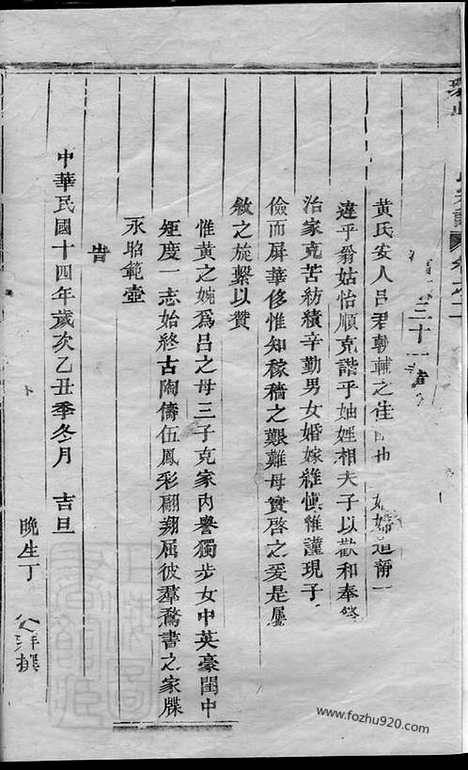 三十一
黃氏安人呂君勅輔之佳 也 婦道靜一
違乎翁姑怡順克諧乎妯娌相夫子以歡和奉
治家克苦紡績辛勤男女婚嫁維慎惟謹現子
儉而屏華侈惟知稼穡之艱難母實啓之爰是屬
敘之旋繫以贊
惟黃之婉為呂之母三子克家內譽獨步女中英豪閨中
矩度一志始終古陶儔伍鳳彩翩翔屈彼羣鶩書之家牒
永昭範壺
旹
中華民國十四年歲次乙丑季冬月 吉旦
晚生丁 撰
www.fozhu920.com